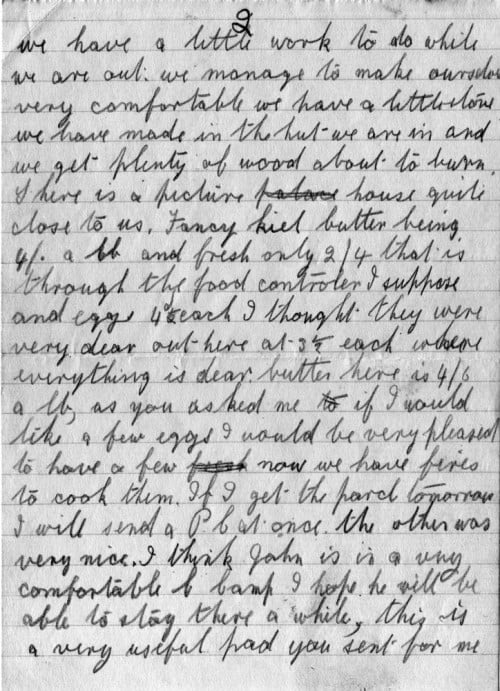 2
we have a little work to do while
we are out. we manage to make ourselves
very comfortable we have a little stove
we have made in the hut we are in and
we get plenty of wood about to burn.
There is a picture palace house quite
close to us. Fancy kiel butter being
4/. a lb and fresh only 2/4 that is
through the food controler I suppose
and eggs each I thought they were
very dear out here at each where
everything is dear butter here is 4/6
a lb, as you asked me to if I would
like a few eggs I would be very pleased
to have a few fresh now we have fires
to cook them. If I get the parcl tomorrow
I will send a P b at once. the other was
very nice. I think John is in a very
comfortable b bamp I hope he will be
able to stay there a while, this is
a very useful pad you sent for me